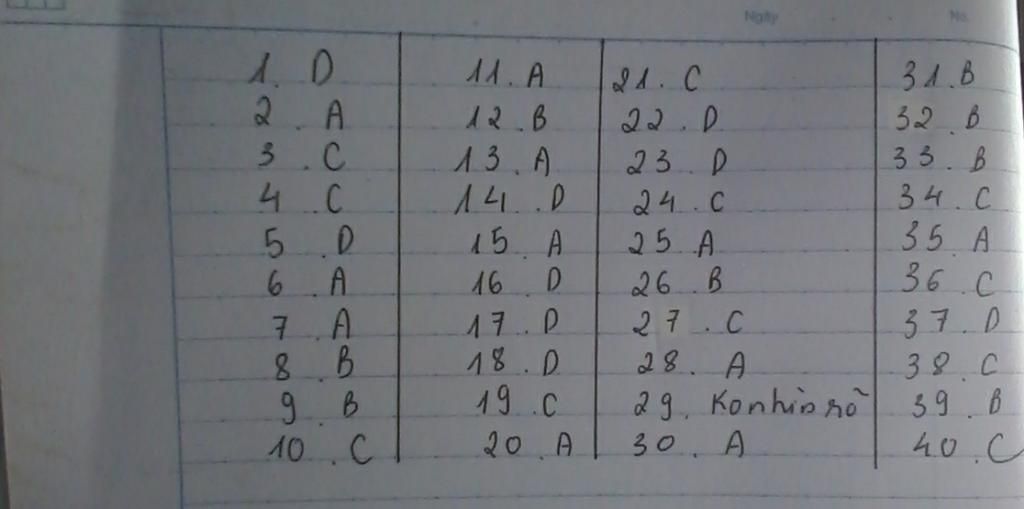 Ngày No.
1. D
2. A
3. C
4. C
5. D
6. A
7. A
8. B
9. B
10. C
11. A
12. B
13. A
14. D
15. A
16. D
17. D
18. D
19. C
20. A
21. C
22. D
23. D
24. C
25. A
26. B
27. C
28. A
29. Konhìn rõ
30. A
31. B
32. B
33. B
34. C
35. A
36. C
37. D
38. C
39. B
40. C